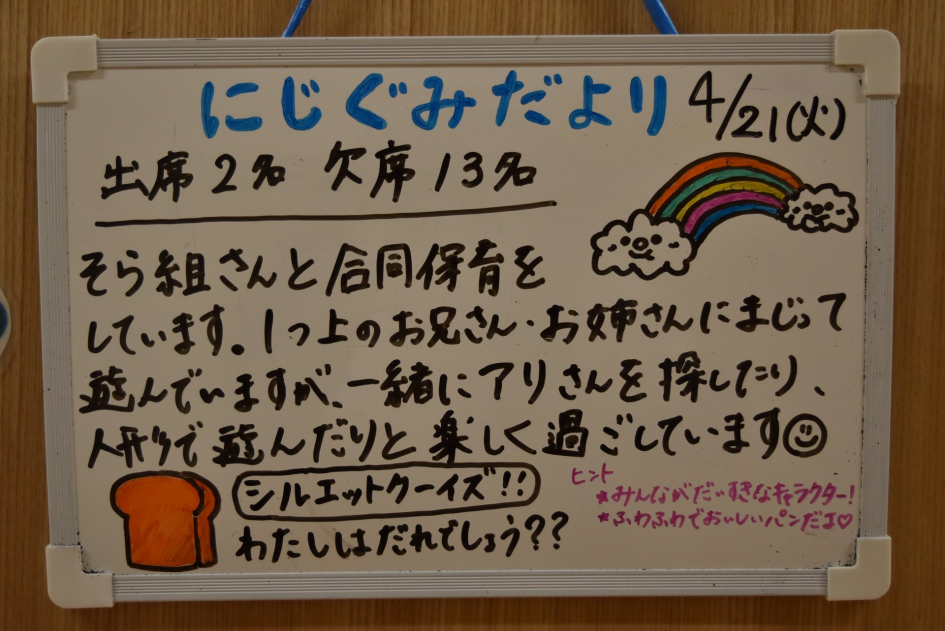 にじぐみだより 4/21(火)
出席 2名 欠席 13名
そら組さんと合同保育を
しています。1つ上のお兄さん・お姉さんにまじって
遊んでいますが、一緒にアリさんを探したり、
人形で遊んだりと楽しく過ごしています
シルエットクーイズ!!
わたしはだれでしょう??
ヒント
★みんながだいすきなキャラクター!
★ふわふわでおいしいパンだよ♡